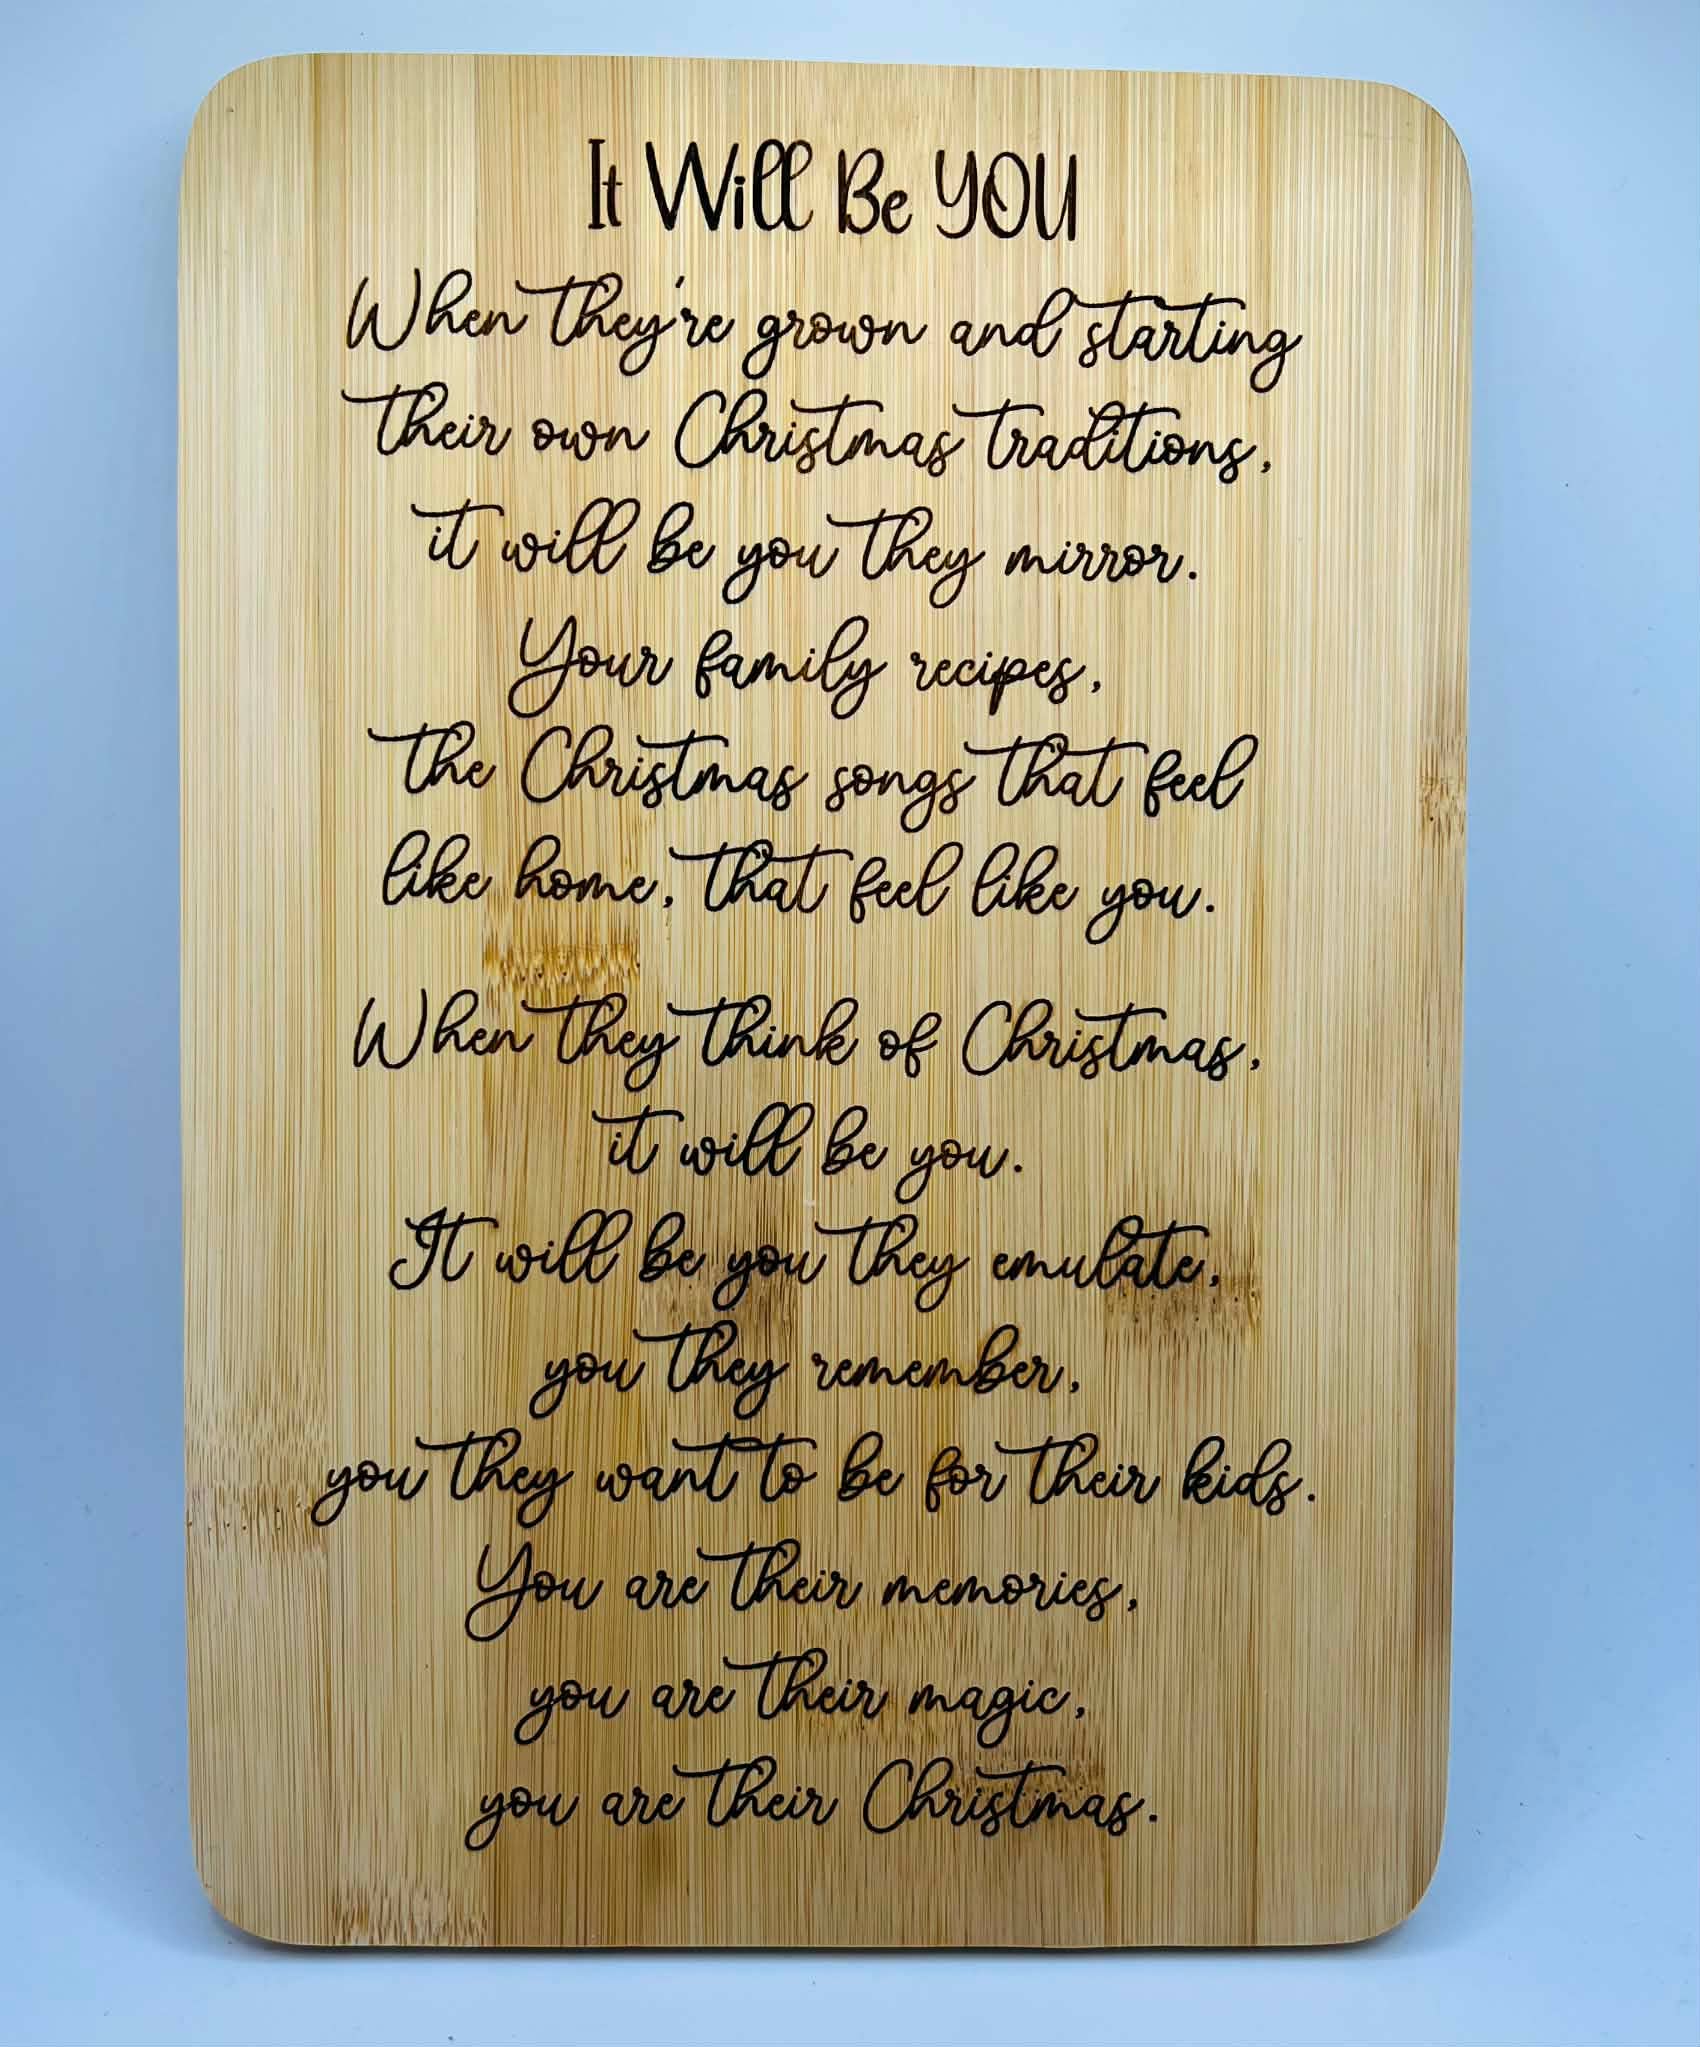 It Will Be YOU
When they're grown and starting
their own Christmas traditions,
it will be you they mirror.
Your family recipes,
the Christmas songs that feel
like home, that feel like you.
When they think of Christmas,
it will be you.
It will be you they emulate,
you they remember,
you they want to be for their kids.
You are their memories,
you are their magic,
you are their Christmas.